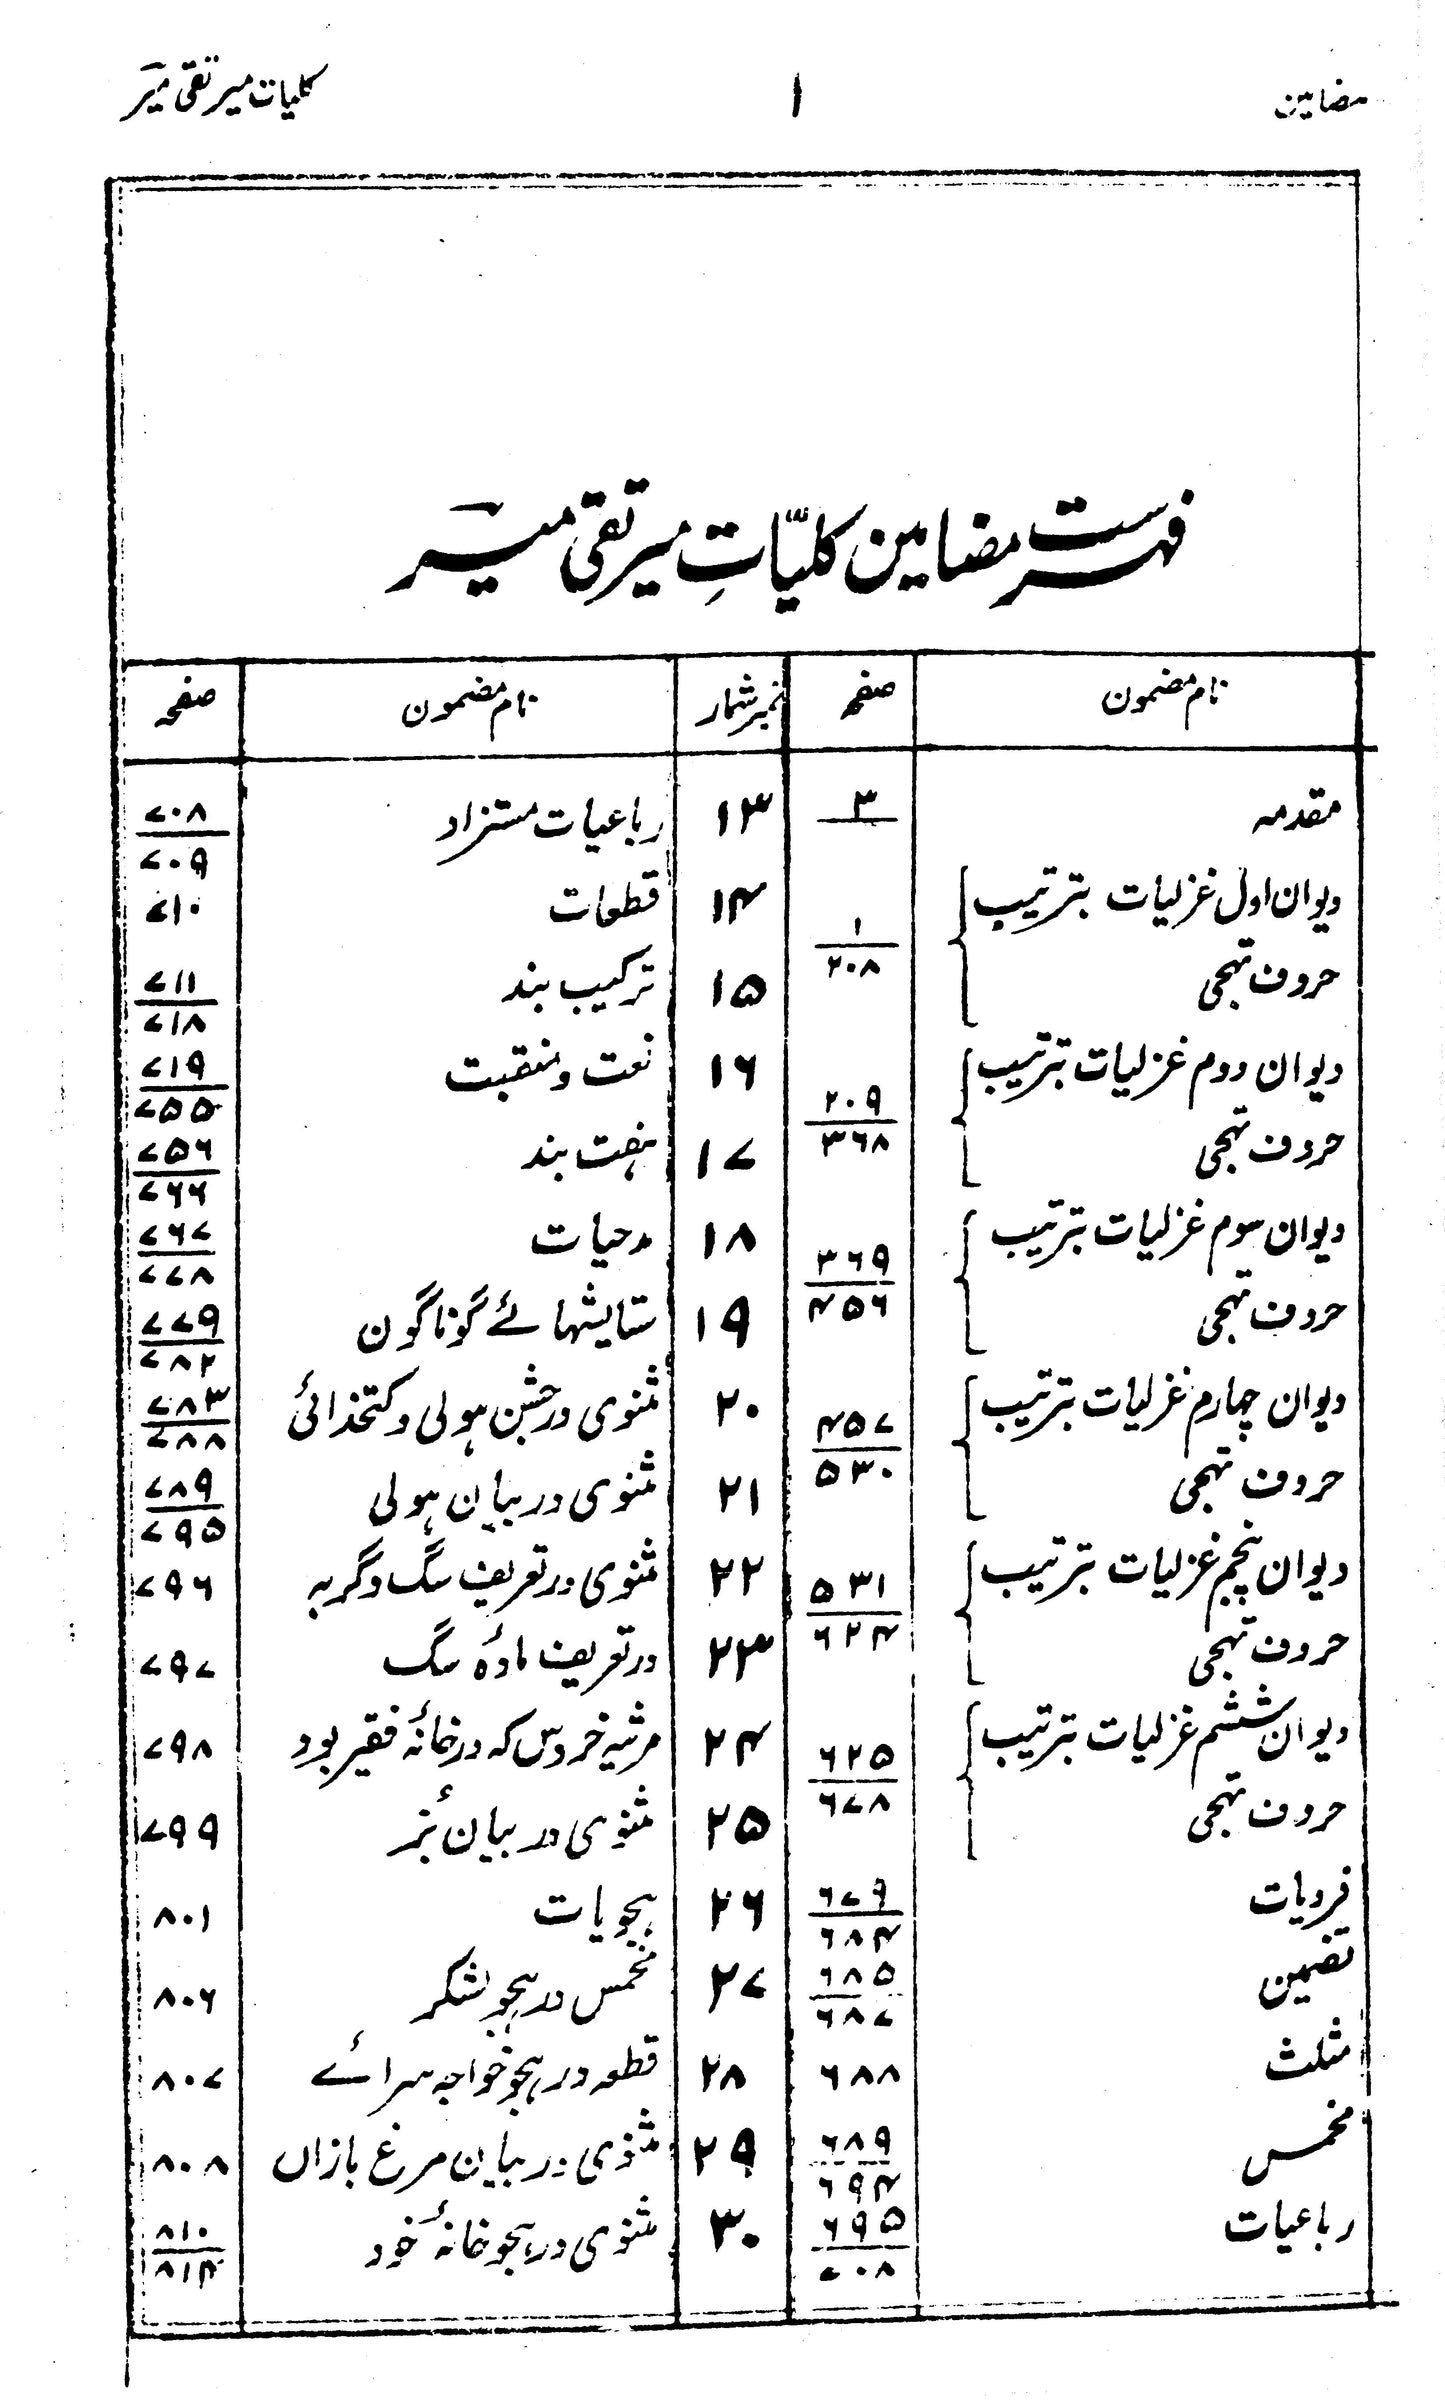 مضامین
۱
کلیات میر تقی میرؔ
فہرست مضامین کلیّاتِ میر تقی میرؔ
نام مضمون
صفحہ
مقدمہ
۳
دیوان اول غزلیات بترتیب
حروف تہجی
۱
۲۰۸
دیوان دوم غزلیات بترتیب
حروف تہجی
۲۰۹
۳۶۸
دیوان سوم غزلیات بترتیب
حروف تہجی
۳۶۹
۴۵۶
دیوان چہارم غزلیات بترتیب
حروف تہجی
۴۵۷
۵۳۰
دیوان پنجم غزلیات بترتیب
حروف تہجی
۵۳۱
۶۲۴
دیوان ششم غزلیات بترتیب
حروف تہجی
۶۲۵
۶۷۸
فردیات
۶۷۹
۶۸۴
تضمین
۶۸۵
۶۸۷
مثلث
۶۸۸
مخمس
۶۸۹
۶۹۴
رباعیات
۶۹۵
۷۰۸
نمبر شمار
نام مضمون
صفحہ
۱۳
رباعیات مستزاد
۷۰۸
۷۰۹
۱۴
قطعات
۷۱۰
۱۵
ترکیب بند
۷۱۱
۷۱۸
۱۶
نعت و منقبت
۷۱۹
۷۵۵
۱۷
ہفت بند
۷۵۶
۷۶۶
۱۸
مدحیات
۷۶۷
۷۷۸
۱۹
ستایشہائے گوناگون
۷۷۹
۷۸۲
۲۰
مثنوی در جشن ہولی و کتخدائی
۷۸۳
۷۸۸
۲۱
مثنوی در بیان ہولی
۷۸۹
۷۹۵
۲۲
مثنوی در تعریف سگ و گربہ
۷۹۶
۲۳
در تعریف مادۂ سگ
۷۹۷
۲۴
مرثیہ خروس کہ در خانۂ فقیر بود
۷۹۸
۲۵
مثنوی در بیان بُز
۷۹۹
۲۶
ہجویات
۸۰۱
۲۷
مخمس در ہجو لشکر
۸۰۶
۲۸
قطعہ در ہجو خواجہ سرائے
۸۰۷
۲۹
مثنوی در بیان مرغ بازاں
۸۰۸
۳۰
مثنوی در ہجو خانۂ خود
۸۱۰
۸۱۴